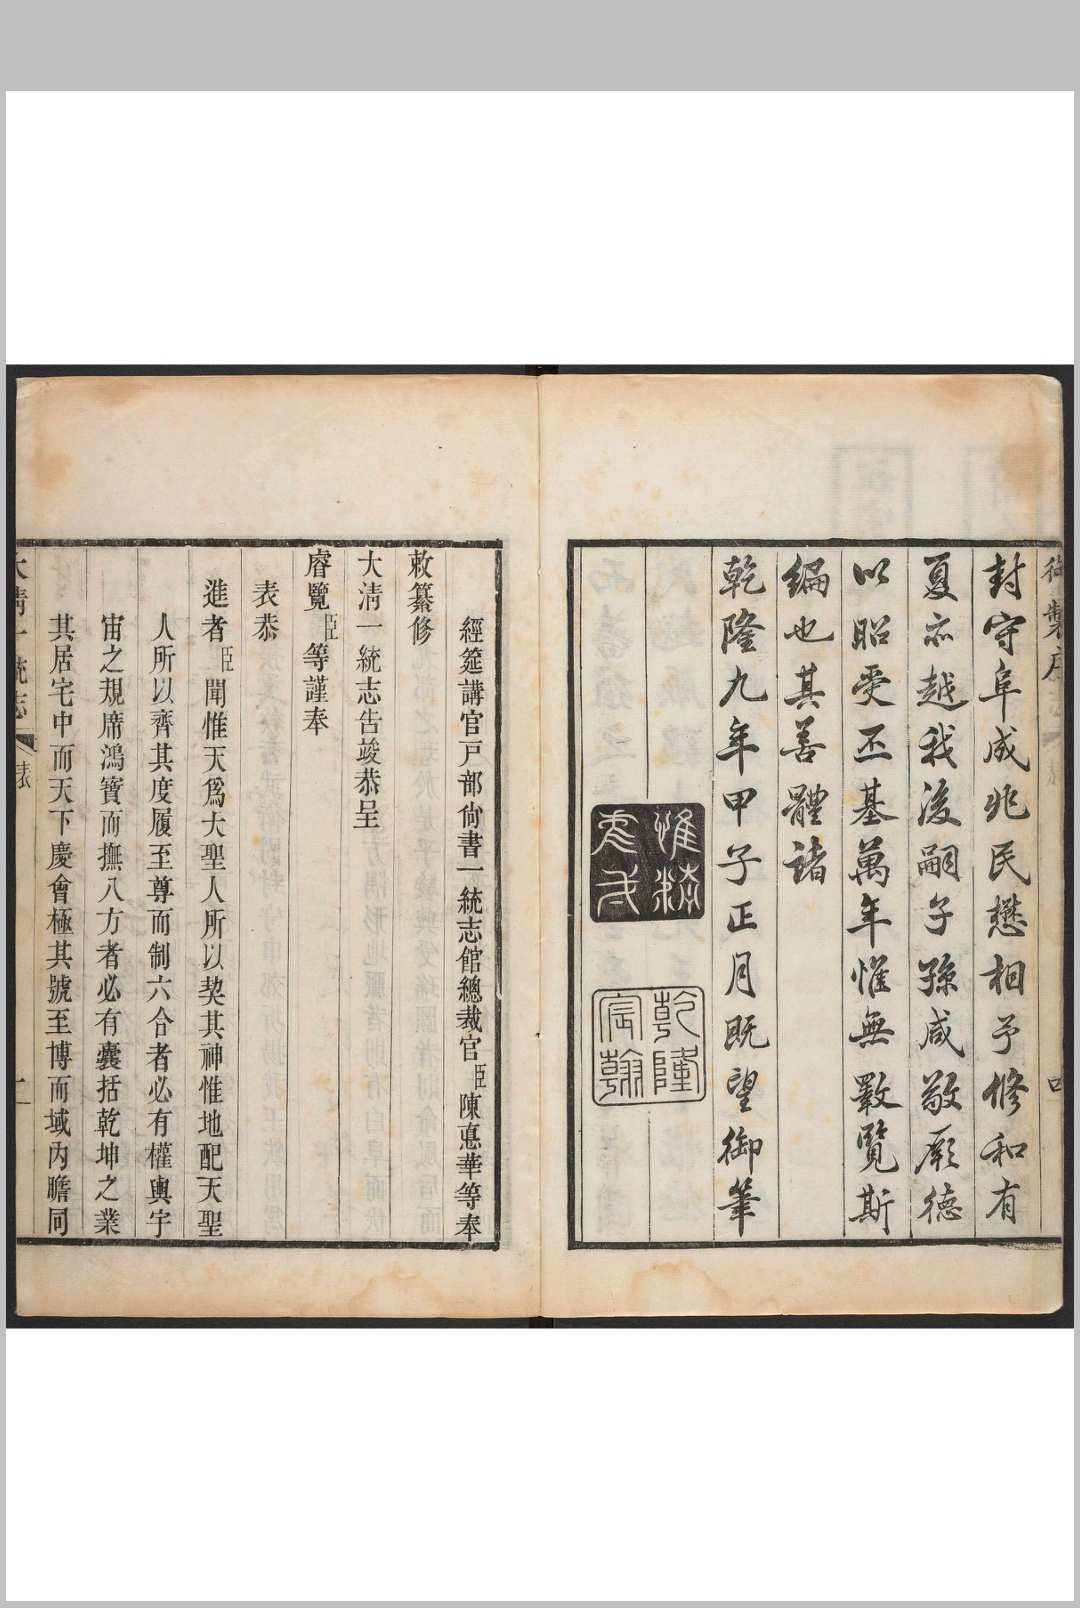 御製序
四
封守阜成兆民懋相予修和有
夏亦越我後嗣子孫咸敬厥德
以昭受丕基萬年惟無斁覽斯
編也其善體諸
乾隆九年甲子正月既望御筆
惟精惟一
乾隆宸翰
經筵講官戸部尙書一統志館總裁官臣陳悳華等奉
敕纂修
大淸一統志告竣恭呈
睿覽臣等謹奉
表恭
進者臣聞惟天爲大聖人所以契其神惟地配天聖
人所以齊其度履至尊而制六合者必有權輿宇
宙之規席鴻寶而撫八方者必有囊括乾坤之業
其居宅中而天下慶會極其號至博而域內瞻同
大淸一統志
表
一